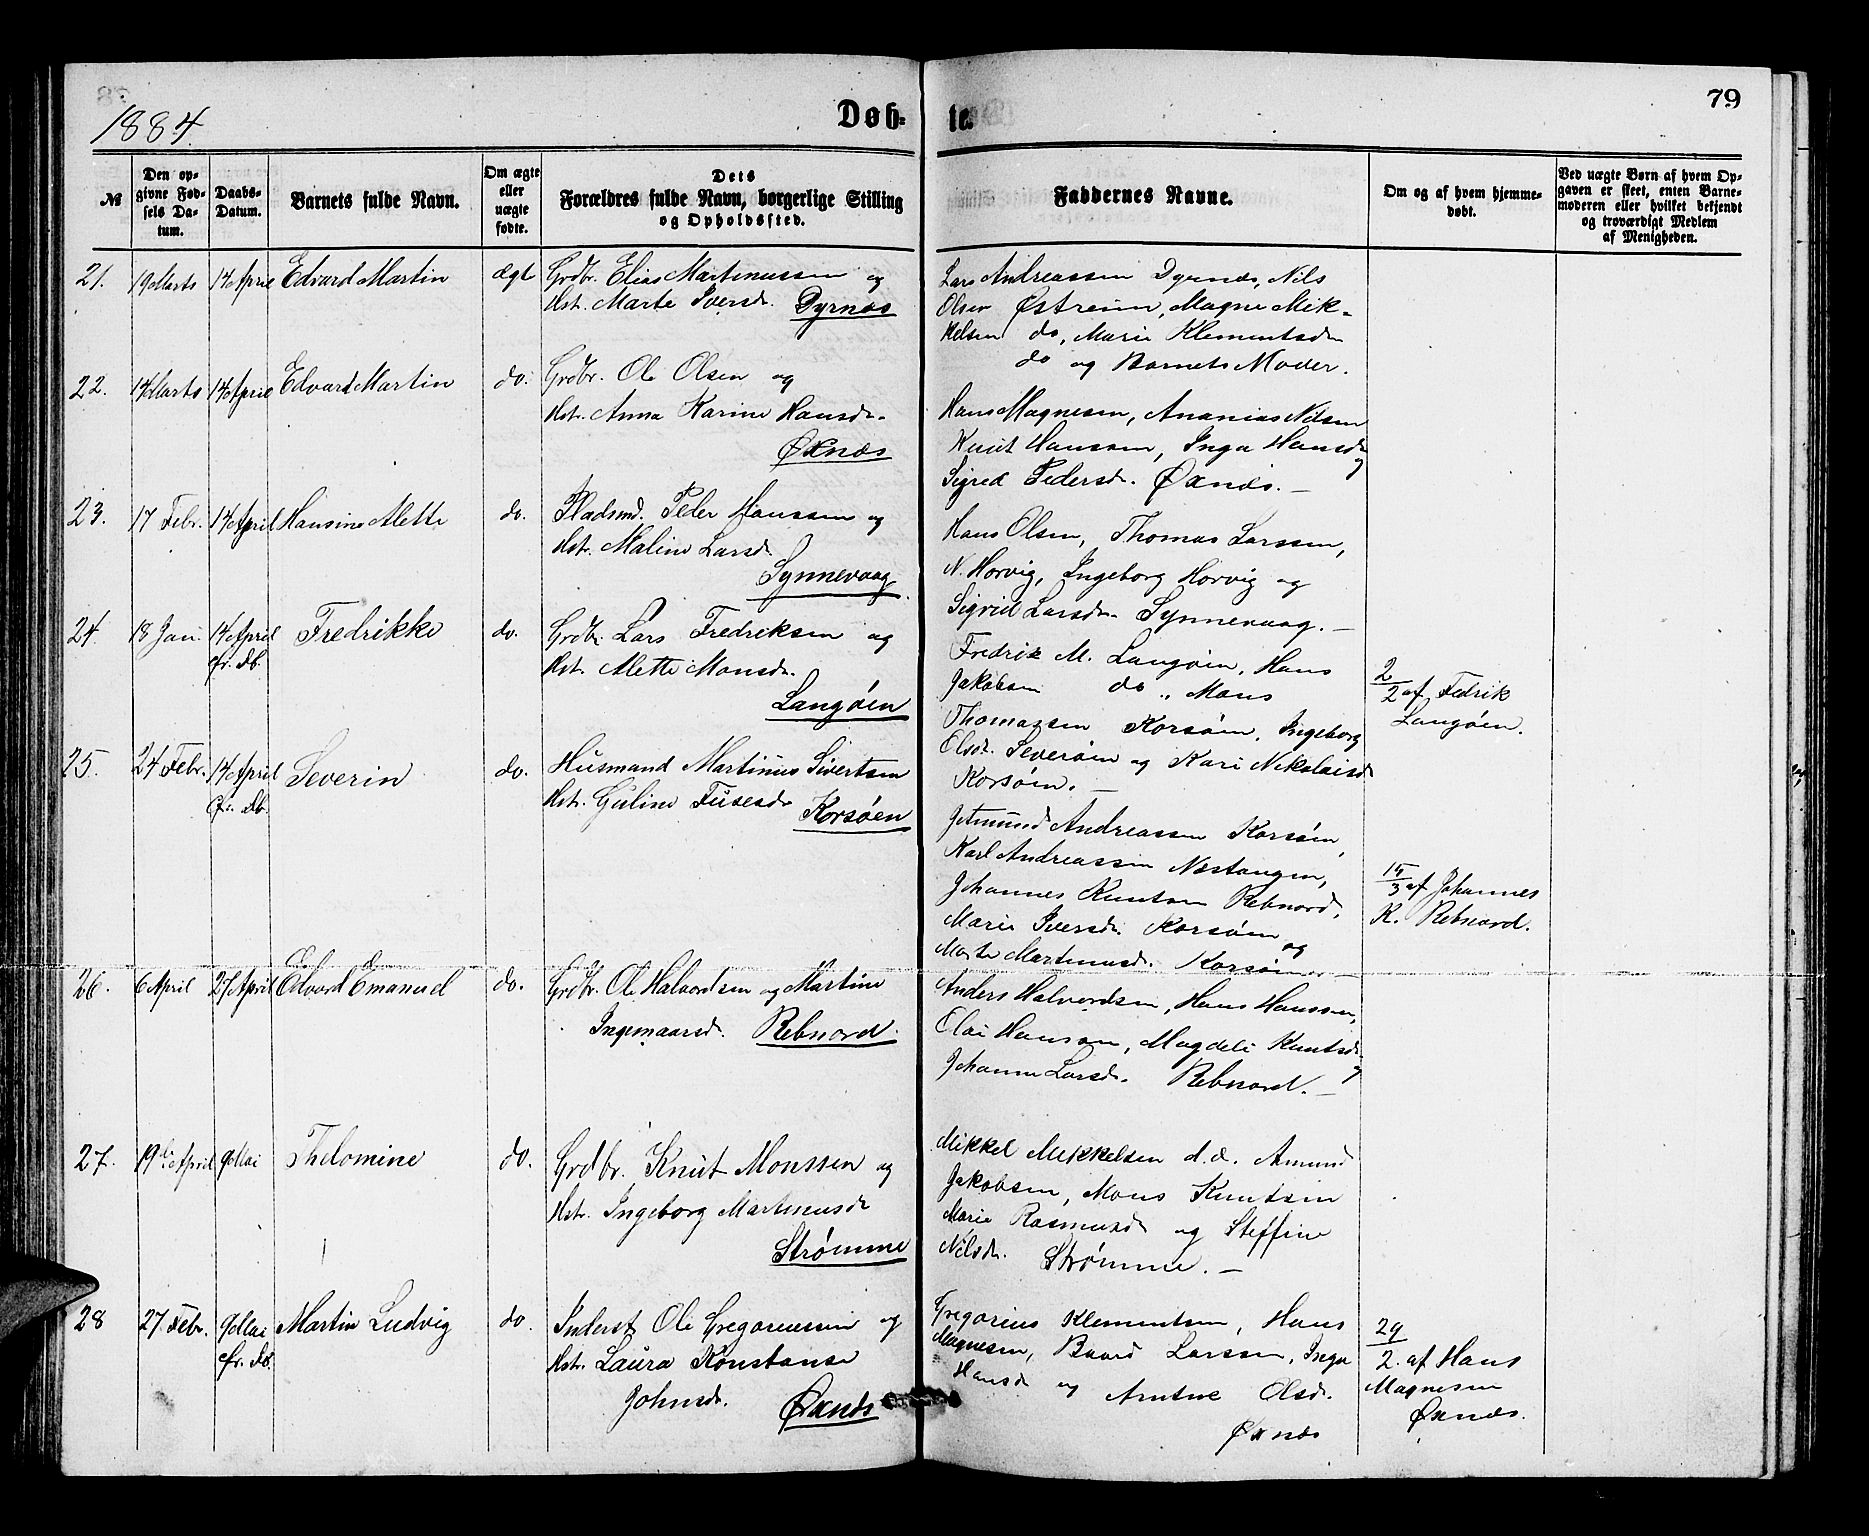 1884.
Døb-
te.
79
№
Den op-
givne Fød-
sels Da-
tum.
Daabs-
Datum.
Barnets fulde Navn.
Om ægte
eller
uægte
fødte.
Dets
Forældres fulde Navn, borgerlige Stilling
og Opholdssted.
Faddernes Navne.
Om og af hvem hjemme-
døbt.
Ved uægte Børn af hvem Op-
gaven er skeet, enten Barne-
moderen eller hvilket bekjendt
og troværdigt Medlem
af Menigheden.
21. 19 Marts 14 April Edvard Martin ægt Grdbr. Elias Martinussen og
Hst. Marte Iversdr. Dyrnæs
Lars Andreassen Dyrnæs, Nils
Olsen Østreim, Magne Mik-
kelsen do, Marie Klementsdr
do og Barnets Moder.
22. 14 Marts 14 April Edvard Martin do. Grdbr. Ole Olsen og
Hst. Anna Karine Hansdr.
Øxnæs
Hans Magnesen, Ananias Nilsen
Knut Hanssen, Inga Hansdr
og
Sigred Pedersdr. Øxnæs. —
23. 17 Febr. 14 April Hansine Alette do. Pladsmd. Peder Hanssen og
Hst. Maline Larsdr.
Synnevaag.
Hans Olsen, Thomas Larssen,
N. Horvig, Ingeborg Horvig og
Sigrid Larsdr. Synnevaag. —
24. 18 Jan. 14 April Fredrikke do. Grdbr. Lars Fredriksen og
fr. Db.
Hst. Alette Monsdr.
Langøen
Fredrik M. Langøen, Hans
Jakobsen do, Mons
Thomassen Korsøen, Ingeborg
Olsdr. Severøen og Kari Nikolaisdr
Korsøen. —
2
2 af Fedrik
Langøen.
25. 24 Febr. 14 April Severin do. Husmand Martinus Sivertsen
fr. Db.
Hst. Guline Fusesdr Korsøen
Jetmund Andreassen Korsøen,
Karl Andreassen Næstangen,
Johannes Knutsen Rebnord,
Marie Iversdr. Korsøen og
Marte Martinusdr. Korsøen —
15
3 af Johannes
K. Rebnord.
26. 6 April 27 April Edvard Emanuel do. Grdbr. Ole Halvordsen og Martine
Ingemaarsdr. Rebnord.
Anders Halvordsen, Hans Hanssen,
Olai Hansen, Magdeli Knutsdr
og
Johanne Larsdr. Rebnord. —
27. 19de April 9 Mai Thelomine do. Grdbr. Knut Monssen og
Hst. Ingeborg Martinusdr
Strømme
Mikkel Mikkelsen d.æ. Amund
Jakobsen, Mons Knutsen
Marie Rasmusdr og Steffine
Nilsdr. Strømme. —
28 27 Febr. 9 Mai Martin Ludvig do. Inderst Ole Gregoriussen og
fr. Db.
Hst. Laura Konstanse
Johnsdr. Øxnæs
Gregorius Klementsen, Hans
Magnesen, Baard Larssen, Inga
Hansdr og Arntine Olsdr.
Øxnæs
29
2. af Hans
Magnesen
Øxnæs.